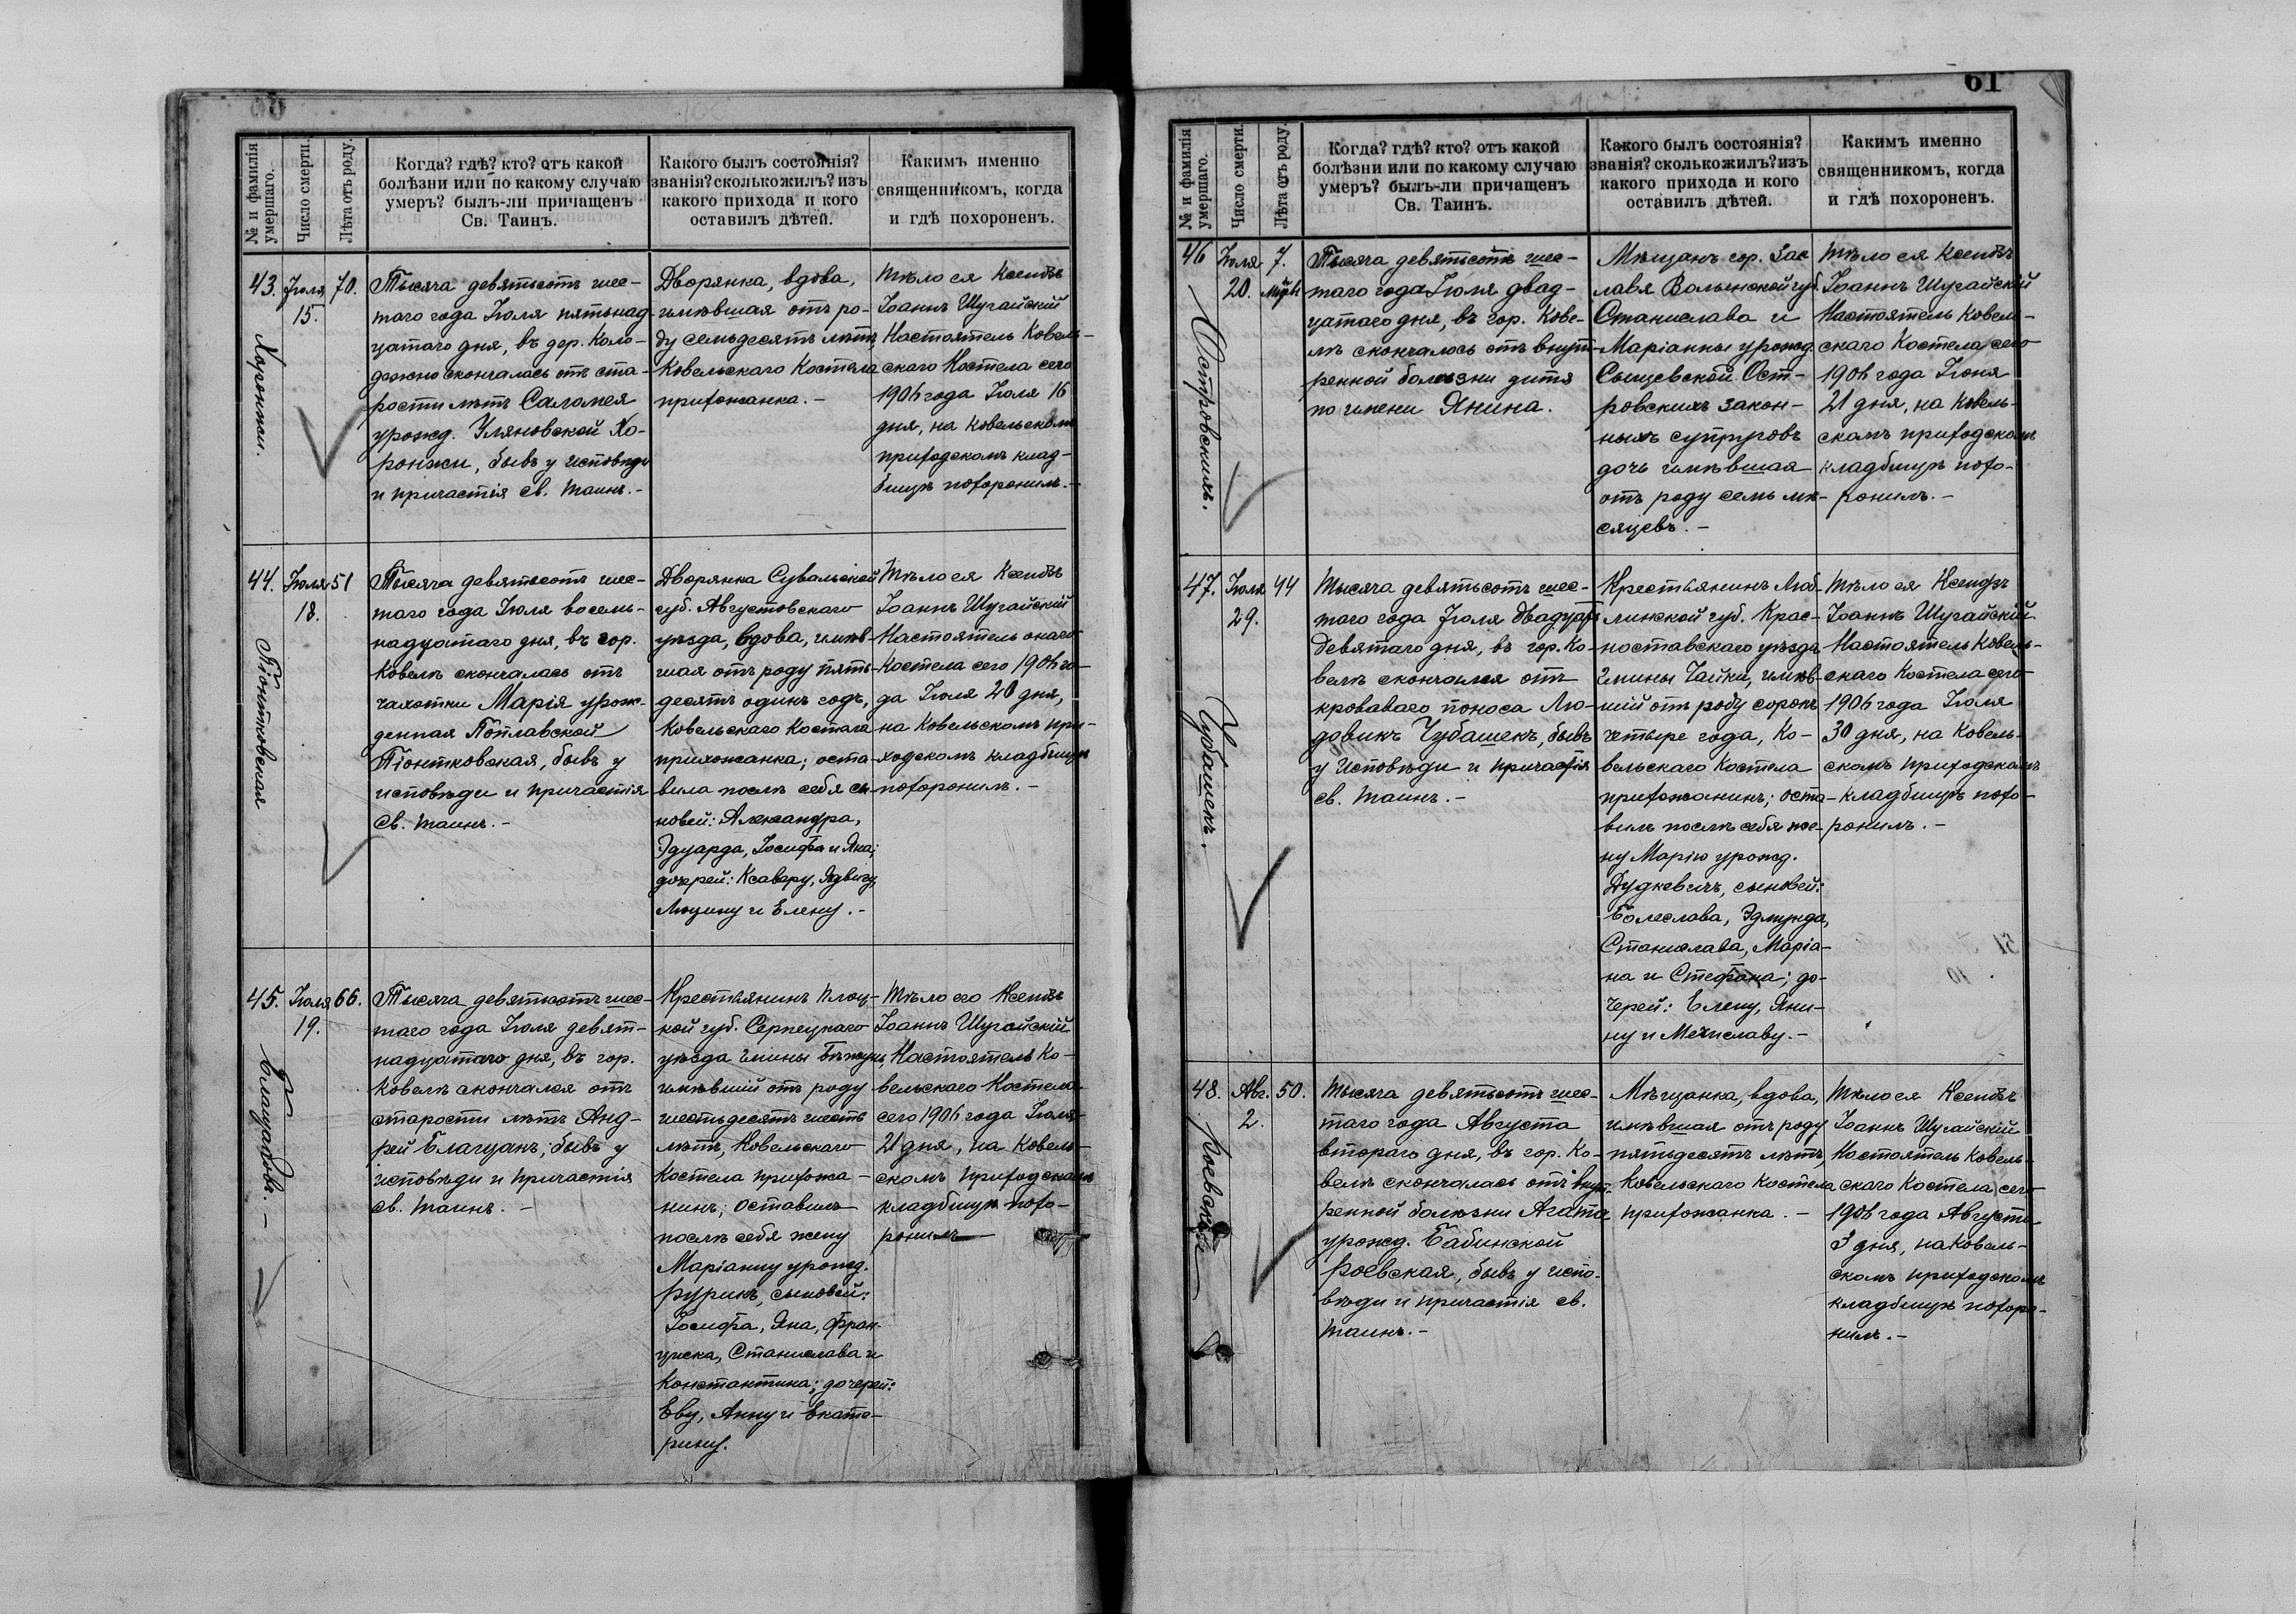 61
№ и фамилія
умершаго.
Число смерти.
Лѣта отъ роду.
Когда? гдѣ? кто? отъ какой
болѣзни или по какому случаю
умеръ? былъ-ли причащенъ
Св. Таинъ.
Какого былъ состоянія?
званія? сколько жилъ? изъ
какого прихода и кого
оставилъ дѣтей.
Каким​ъ именно
священникомъ, когда
и гдѣ похороненъ.
43.
Хоронжи.
Іюля
15.
70.
Тысяча девятьсотъ шес-
таго года Іюля пятьнад-
цатаго дня, въ дер. Коло-
дежно скончалась отъ ста-
рости лѣтъ Саломея
урожд. Уляновской Хо-
ронжи, бывъ у исповѣди
и причастія св. таинъ.-
Дворянка, вдова,
имѣвшая отъ ро-
ду семьдесятъ лѣтъ
Ковельскаго Костела
прихожанка.-
Тѣло ея Ксендзъ
Іоаннъ Шугайскій
Настоятель Ковель-
скаго Костела сего
1906 года Іюля 16
дня, на Ковельскомъ
приходскомъ клад-
бищѣ похоронилъ.-
44.
Піонтковская
Іюля
18.
51
Тысяча девятьсотъ шес-
таго года Іюля восемь-
надцатаго дня, въ гор.
Ковелѣ скончалась отъ
чахотки Марія урож-
денная Поплавской
Піонтковская, бывъ у
исповѣди и причастія
св. таинъ.-
Дворянка Сувальской
губ. Августовскаго
уѣзда, вдова, имѣв-
шая отъ роду пять-
десятъ одинъ годъ,
Ковельскаго Костела
прихожанка; оста-
вила послѣ себя сы-
новей: Александра,
Эдуарда, Іосифа и Яна;
дочерей: Ксаверу, Ядвигу,
Люцину и Елену.-
Тѣло ея Ксендзъ
Іоаннъ Шугайскій
Настоятель онаго
Костела сего 1906 го-
да Іюля 20 дня,
на Ковельскомъ при-
ходскомъ кладбищѣ
похоронилъ.-
45.
Іюля
19.
66.
Тысяча девятьсотъ шес-
таго года Іюля девят-
надцатаго дня, въ гор.
Ковелѣ скончался отъ
старости лѣтъ Анд-
рей Благцан​ъ, бывъ у
исповѣди и причастія
св. таинъ.-
Крестьянинъ Плоц-
кой губ. Серпецкаго
уѣзда гмины Бѣжунь,
имѣвшій отъ роду
шестьдесятъ шесть
лѣтъ, Ковельскаго
Костела прихожа-
нинъ; оставилъ
послѣ себя жену
Маріанну урожд.
Рурикъ, сыновей:
Іосифа, Яна, Фран-
циска, Станислава и
Константина; дочерей:
Еву, Анну и Екате-
рину.
Тѣло его Ксендзъ
Іоаннъ Шугайскій
Настоятель Ко-
вельскаго Костела
сего 1906 года Іюля
21 дня, на Ковель-
скомъ приходскомъ
кладбищѣ похо-
ронилъ
№ и фамилія
умершаго.
Число смерти.
Лѣта отъ роду.
Когда? гдѣ? кто? отъ какой
болѣзни или по какому случаю
умеръ? былъ-ли причащенъ
Св. Таинъ.
Какого былъ состоянія?
званія? сколько жилъ? изъ
какого прихода и кого
оставилъ дѣтей.
Какимъ именно
священникомъ, когда
и гдѣ похороненъ.
46
Островскихъ.
Іюля
20.
7.
Тысяча девятьсотъ шес-
таго года Іюля двад-
цатаго дня, въ гор. Кове-
лѣ скончалось отъ внут-
ренной болѣзни дитя
по имени Янина.
Мѣщанъ гор. Зас
лавя Волынской губ.
Станислава и
Маріанны урожд.
Сыцевской Ост-
ровскихъ закон-
ныхъ супруговъ
дочь имѣвшая
отъ роду семь мѣ-
сяцевъ.-
Тѣло ея Ксендзъ
Іоаннъ Шугайскій
Настоятель Ковель-
скаго Костела сего
1906 года Іюня
21 дня, на Ковель-
скомъ приходскомъ
кладбищѣ похо-
ронилъ.-
47.
Чубашекъ.
Іюля
29.
44
Тысяча девятьсотъ шес-
таго года Іюля двадцать
девятаго дня, въ гор. Ко-
велѣ скончался отъ
кроваваго поноса Лю-
довикъ Чубашекъ, бывъ
у исповѣди и причастія
св. таинъ.-
Крестьянинъ Люб-
линской губ. Крас-
ноставскаго уѣзда
гмины Чайки, имѣв-
шій отъ роду сорокъ
четыре года, Ко-
вельскаго Костела
прихожанинъ; оста-
вилъ послѣ себя же-
ну Марію урожд.
Дудкевичъ, сыновей:
Болеслава, Эдмунда,
Станислава, Маріа-
на и Стефана; до-
черей: Елену, Яни-
ну и Мечиславу.-
Тѣло ея Ксендзъ
Іоаннъ Шугайскій
Настоятель Ковель-
скаго Костела сего
1906 года Іюля
30 дня, на Ковель-
скомъ приходскомъ
кладбищѣ похо-
ронилъ.-
48.
Роевская
Авг.
2.
50.
Тысяча девятьсотъ шес-
таго года Августа
втораго дня, въ гор. Ко-
велѣ скончалась отъ внут-
ренной болѣзни Агата
урожд. Бабинской
Роевская, бывъ у испо-
вѣди и причастія св.
таинъ.-
Мѣщанка, вдова,
имѣвшая отъ роду
пятьдесятъ лѣтъ,
Ковельскаго Костела
прихожанка.-
Тѣло ея Ксендзъ
Іоаннъ Шугайскій
Настоятель Ковель-
скаго Костела сего
1906 года Августа
3 дня, на Ковель-
скомъ приходскомъ
кладбищѣ похоро-
нилъ.-